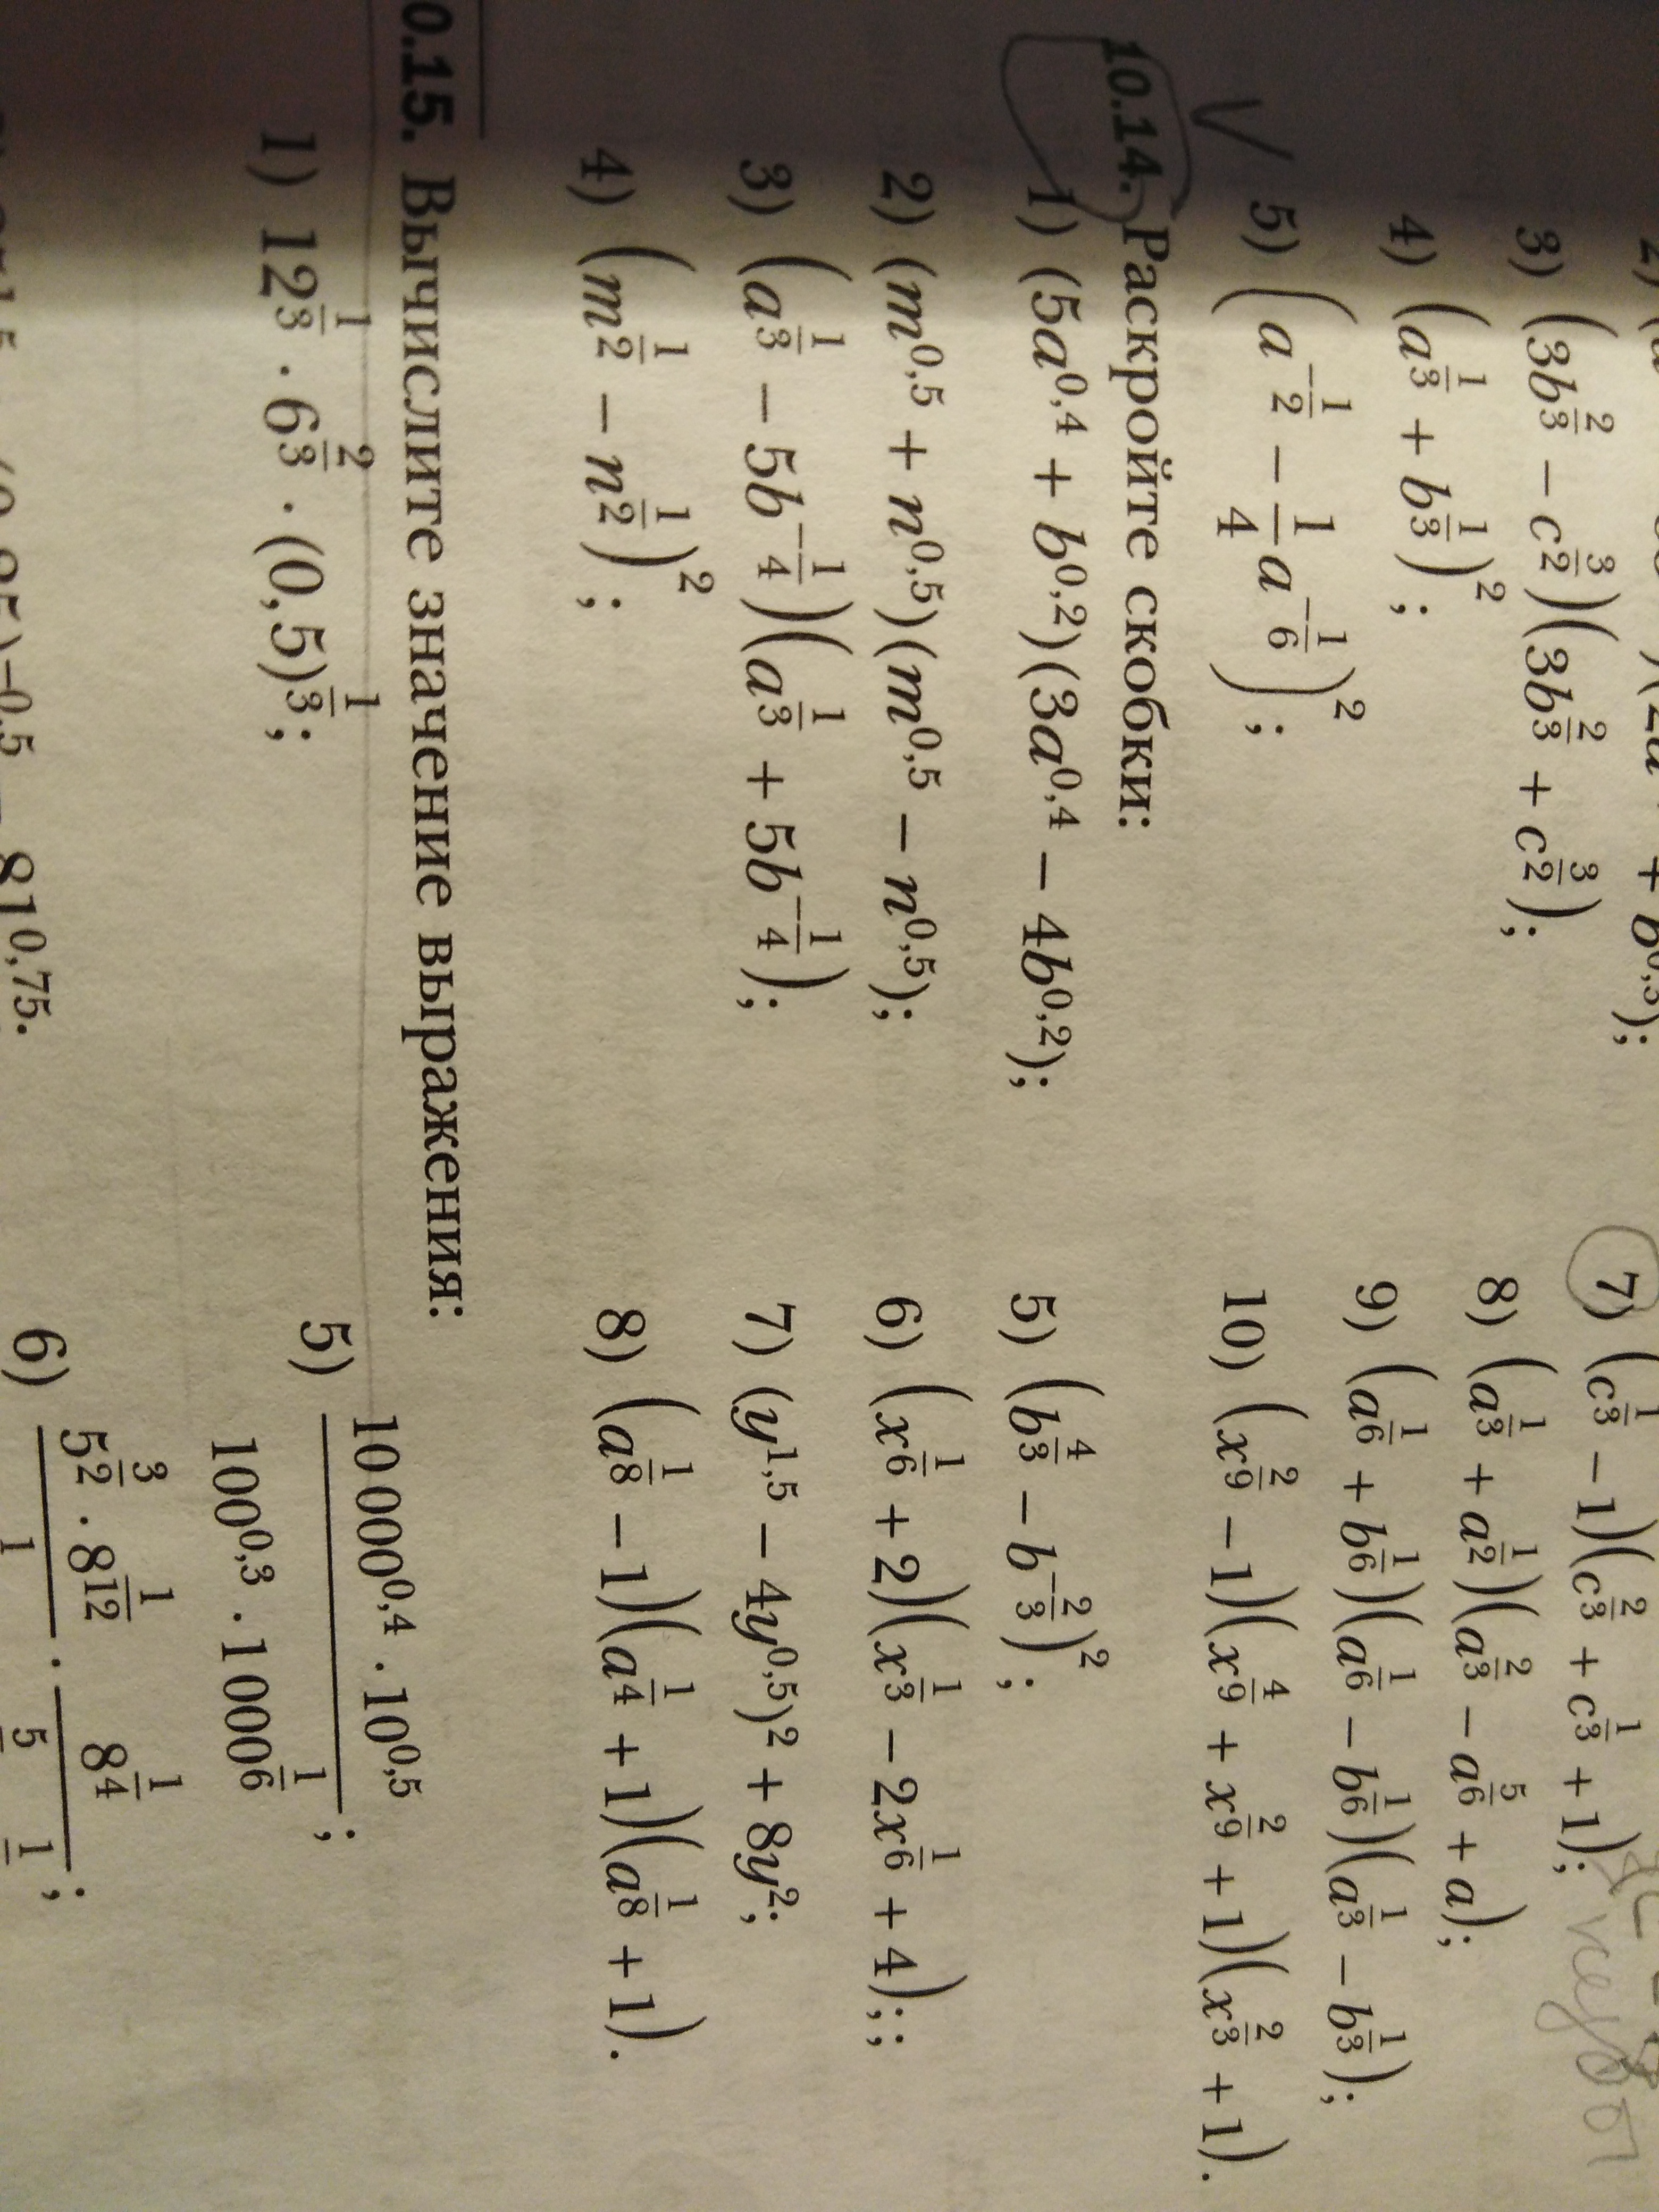 3) (3b^{2/3} − c^{3/2})(3b^{2/3} + c^{3/2});
4) (a^{1/3} + b^{1/3})^2;
5) (a^{-1/2} − \frac{1}{4}a^{-1/6})^2;
7) (c^{1/3} − 1)(c^{2/3} + c^{1/3} + 1);
8) (a^{1/3} + a^{1/2})(a^{2/3} − a^{5/6} + a);
9) (a^{1/6} + b^{1/6})(a^{1/6} − b^{1/6})(a^{1/3} − b^{1/3});
10) (x^{2/9} − 1)(x^{4/9} + x^{2/9} + 1)(x^{2/3} + 1).
10.14. Раскройте скобки:
1) (5a^{0,4} + b^{0,2})(3a^{0,4} − 4b^{0,2});
2) (m^{0,5} + n^{0,5})(m^{0,5} − n^{0,5});
3) (a^{1/3} − 5b^{-1/4})(a^{1/3} + 5b^{-1/4});
4) (m^{1/2} − n^{1/2})^2;
5) (b^{4/3} − b^{-2/3})^2;
6) (x^{1/6} + 2)(x^{1/3} − 2x^{1/6} + 4);;
7) (y^{1,5} − 4y^{0,5})^2 + 8y^2;
8) (a^{1/8} − 1)(a^{1/4} + 1)(a^{1/8} + 1).
0.15. Вычислите значение выражения:
1) 12^{1/3} · 6^{2/3} · (0,5)^{1/3};
81^{0,75}.
5) \frac{10 000^{0,4} · 10^{0,5}}{100^{0,3} · 1000^{1/6}};
6) 5^{3/2} · 8^{1/12} · 8^{1/4};